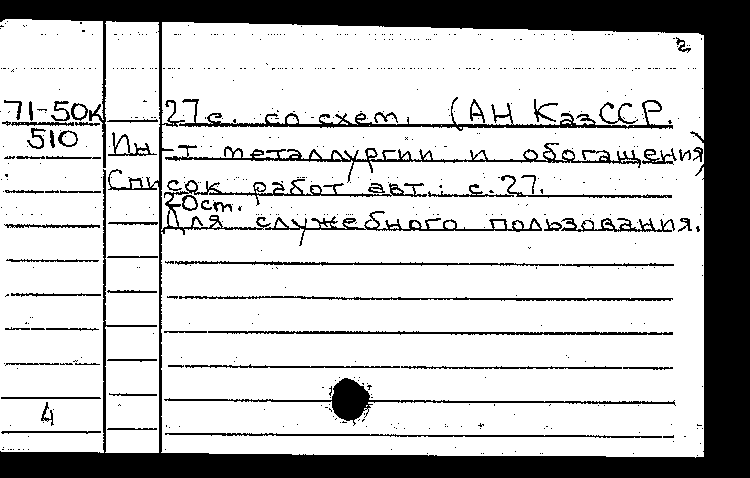 2
71-50к 27с. со схем. (АН КазССР.
510 Ин-т металлургии и обогащения)
Список работ авт.: с.27.
20см.
Для служебного пользования.
4